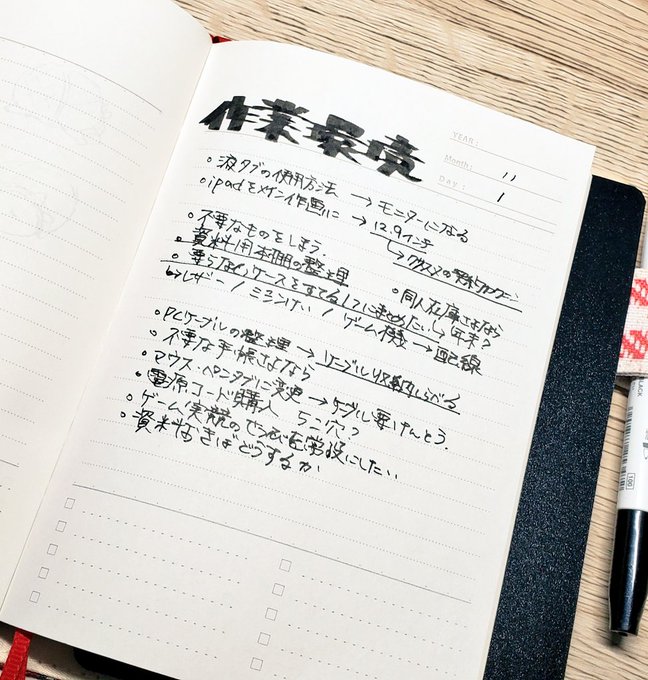 作業環境
YEAR:
Month: 11
Day: 1
・液タブの使用方法 → モニターになる
・ipadをメイン作画に → 12.9インチ
・不要なものをしまう.
・資料用本棚の整理
・要らないケースをすてる
・同人在庫さよなら
レザー / ミシンけい / ゲーム機 → 配線
・PCケーブルの整理 → ケーブル収納しらべる
・不要な手帳さよなら
・マウス・ペンタブに変更 → ケーブル要けんとう.
・電源コード購入 5コ穴?
・ゲーム実況の を常設にしたい
・資料なきばどうするか
BLACK
100